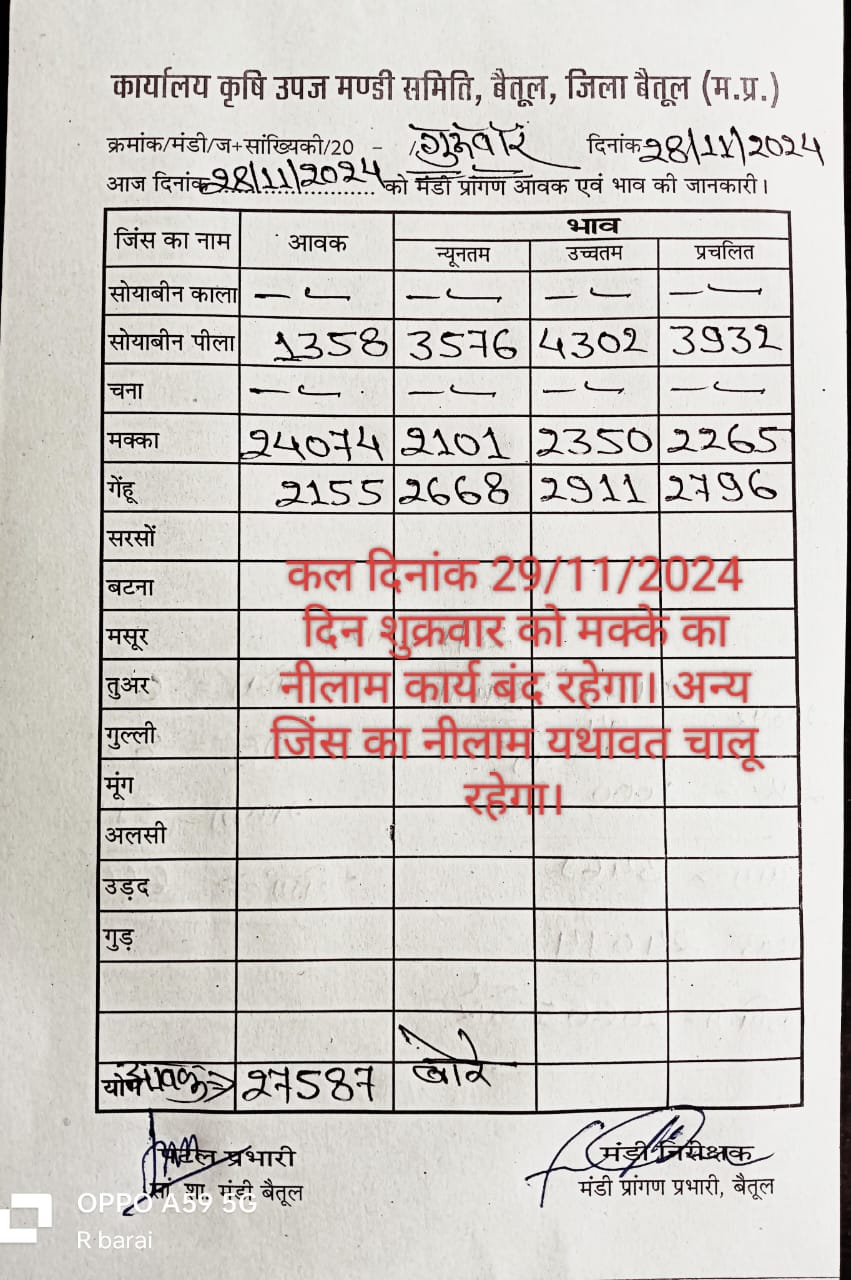 कार्यालय कृषि उपज मण्डी समिति, बैतूल, जिला बैतूल (म.प्र.)
क्रमांक/मंडी/ज+सांख्यिकी/20 - /गुरुवार दिनांक 28/11/2024
आज दिनांक 28/11/2024 को मंडी प्रांगण आवक एवं भाव की जानकारी।
जिंस का नाम आवक भाव
न्यूनतम उच्चतम प्रचलित
सोयाबीन काला — — — —
सोयाबीन पीला 1358 3576 4302 3932
चना — — — —
मक्का 24074 2101 2350 2265
गेंहू 2155 2668 2911 2796
सरसों
बटना
मसूर
तुअर
गुल्ली
मूंग
अलसी
उड़द
गुड़
कल दिनांक 29/11/2024
दिन शुक्रवार को मक्के का
नीलाम कार्य बंद रहेगा। अन्य
जिंस का नीलाम यथावत चालू
रहेगा।
योग आवक 27587 बोरे
प्रभारी मंडी निरीक्षक
सां. शा. मंडी बैतूल मंडी प्रांगण प्रभारी, बैतूल
OPPO A59 5G
R barai